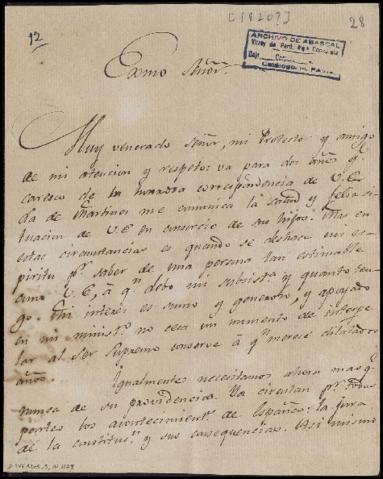 [1820?]
28
12
ARCHIVO DE ABASCAL
Virrey del Perú
Caja
Exmo Señor.
Muy venerado Señor, mi Protector y amigo
de mi atencion y respeto: va para dos años q.
caresco de la correspondencia de V.E.
da de Martinez me comunica la salud y feliz si-
tuacion de V.E en consorcio de su hija. Mas en
estas circunstancias es quando se deshace mi es-
piritu p.r saber de una persona tan estimable
como V.E, á q.n debo mi subsist.a y quanto ten-
go. Mi interes es sumo y generoso, y apoyado
en mi minist.o no cesa un momento de interpe-
lar al Ser Supremo conserve á q.n merece dilatados
años.
Igualmente necesitamos ahora mas q.
nunca de su providencia. Ya circulan p.r todas
partes los acontecimient.s de España: la jura
de la constituc.n y sus consequencias. Asi mismo
DIVERSOS, 5,